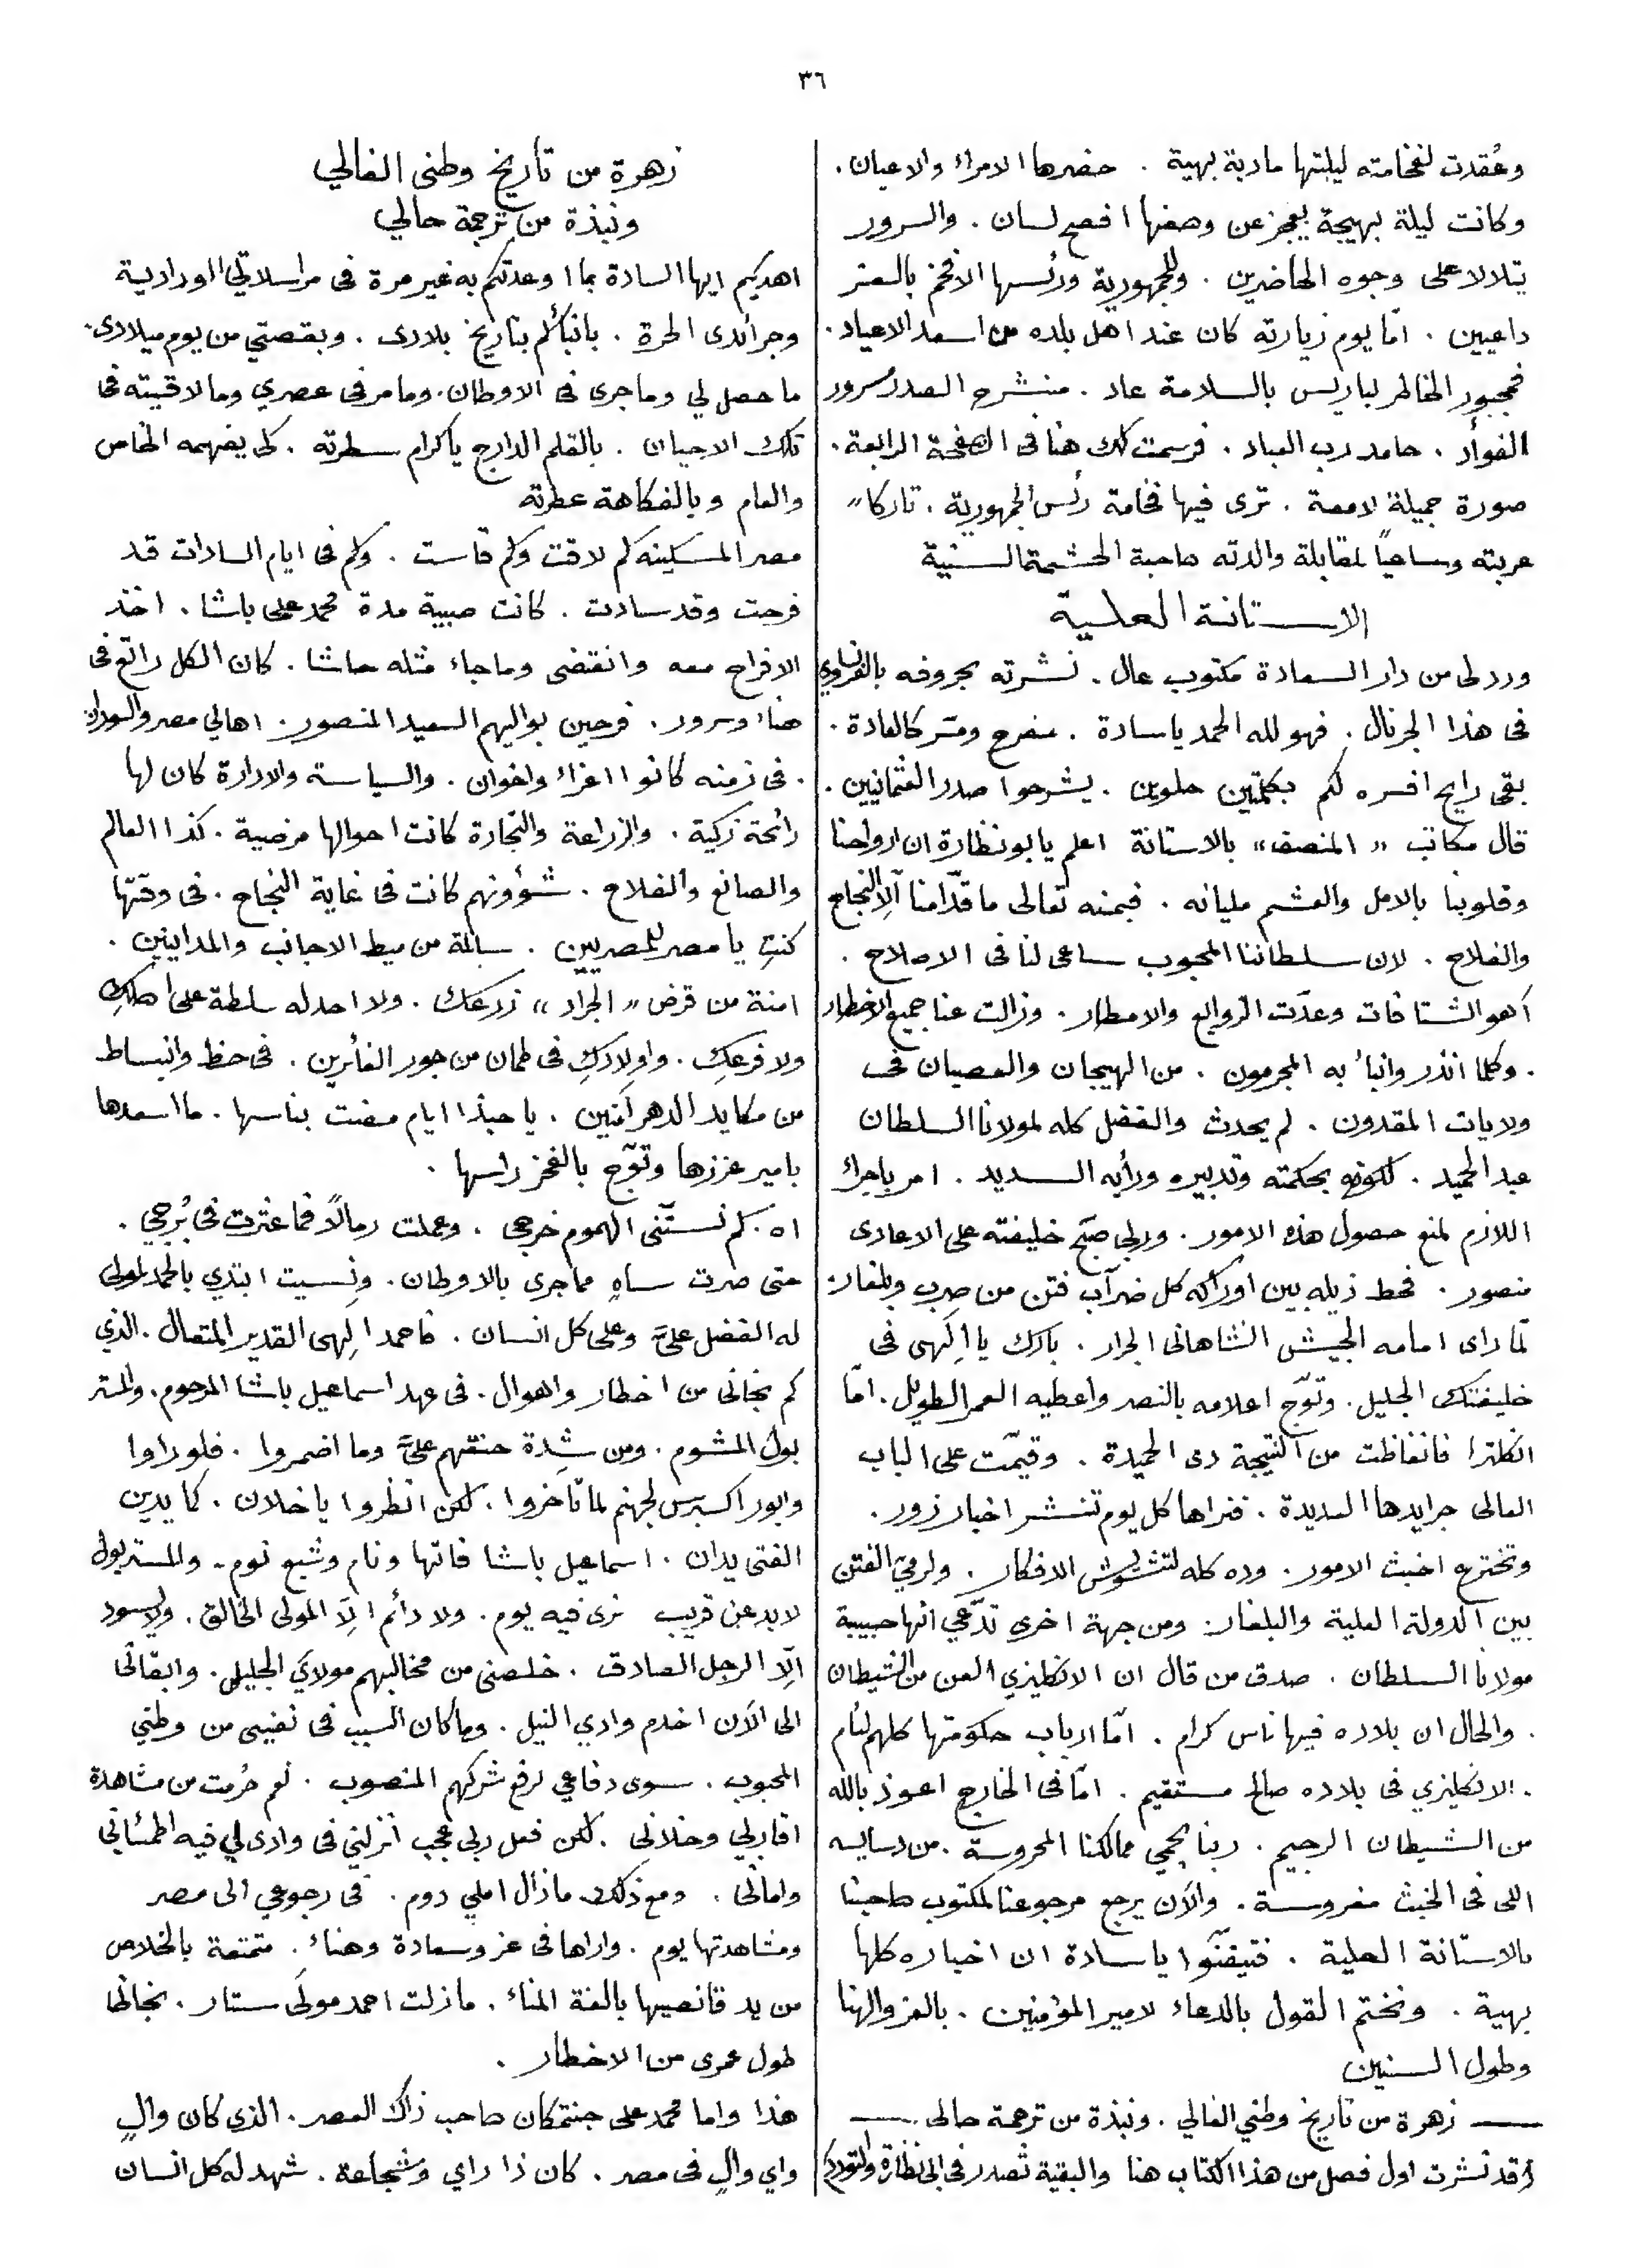 ٣٦
وعُقدت لفخامته ليلتها مادبة بهية . حضرها الامراء والاعيان .
وكانت ليلة بهيجة يعجز عن وصفها افصح لسان . والسرور
يتلالا على وجوه الحاضرين . وللجمهورية ورئسها الافخم بالعز
داعيين . امّا يوم زيارته كان عند اهل بلده من اسعد الاعياد .
فمجبور الخاطر لباريس بالسلامة عاد . منشرح الصدر مسرور
الفوأد . حامد رب العباد . فرسمت لك هنا فى الصفحة الرابعة .
صورة جميلة لامعة . ترى فيها فخامة رئس الجمهورية . تاركا"
عربته وساعياً لمقابلة والدته صاحبة الحشمة السنية
الاستانة العلية
ورد لى من دار السعادة مكتوب عال . نشرته بحروفه بالفرنساوي
فى هذا الجرنال . فهو لله الحمد يا سادة . مفرح ومسّر كالعادة .
بقى رايح افسره لكم بكلمتين حلوين . يشرحوا صدر العثمانيين .
قال مكاتب " المنصف " بالاستانة اعلم يا بو نظارة ان ارواحنا
وقلوبنا بالامل والعشم مليانه . فبمنه تعالى ما قدّامنا الّا النجاح
والفلاح . لان سلطاننا المحبوب ساعى لنا فى الاصلاح .
أهو الشتا فات وعدّت الزوابع والامطار . وزالت عنا جميع الاخطار
. وكلما انذر وانبأ به المجرمون . من الهيجان والعصيان فى
ولايات المقدون . لم يحدث والفضل كله لمولانا السلطان
عبد الحميد . لكونه بحكمته وتدبيره ورأيه السديد . امر باجراء
اللازم لمنع حصول هذه الامور . وربى صبّح خليفته على الاعادى
منصور . فحط ذيله بين اوراكه كل ضرّاب فتن من صِرب وبلغار .
لمّا راى امامه الجيش الشاهانى الجرار . بارك يا الٓهى فى
خليفتك الجليل . وتوّج اعلامه بالنصر واعطيه العمر الطويل . امّا
انكلترا فانغاظت من النتيجة دى الحميدة . وقيّمت على الباب
العالى جرايدها العديدة . فنراها كل يوم تنشر اخبار زور .
وتخترع اخبث الامور . وده كله لتشوش الافكار . ولرمى الفتن
بين الدولة العلية والبلغار . ومن جهة اخرى تدّعي انها حبيبة
مولانا السلطان . صدق من قال ان الانكليزي العن من الشيطان
. والحال ان بلاده فيها ناس كرام . امّا ارباب حكومتها كلهم لئام
. الانكليزي فى بلاده صالح مستقيم . امّا فى الخارج اعوذ بالله
من الشيطان الرجيم . ربنا يحمي ممالكنا المحروسة . من دسايسه
اللى فى الخبث مغروسة . والآن يرجع مرجوعنا لمكتوب صاحبنا
بالاستانة العلية . فتيقنّوا يا سادة ان اخباره كلها
بهية . ونختم القول بالدعاء لامير المؤمنين . بالعز والهنا
وطول السنين
—— زهرة من تاريخ وطني الغالي . ونبذة من ترجمة حالى ——
قد نشرت اول فصل من هذا الكتاب هنا والبقية تصدر فى ابى نظارة والتودد
زهرة من تأريخ وطنى الغالي
ونبذة من ترجمة حالي
اهديكم ايها السادة بما اوعدتكم به غير مرة فى مراسلاتي الودادية
وجرائدى الحرة . بانبائكم بتاريخ بلادى . وبقصتي من يوم ميلادى .
ما حصل لي وما جرى فى الاوطان . وما مر فى عصري وما لاقيته فى
تلك الاحيان . بالقلم الدارج يا كرام سطرته . كى يفهمه الخاص
والعام وبالفكاهة عطرته
مصر المسكينه كم لاقت وكم قاست . وكم فى ايام السادات قد
فرحت وقد سادت . كانت صبية مدة محمد على باشا . اخذ
الافراح معه وانقضى وما جاء مثله حاشا . كان الكل راتع فى
هناء وسرور . فرحين بواليهم السعيد المنصور . اهالي مصر والسودان
. فى زمنه كانوا اعزاء واخوان . والسياسة والادارة كان لها
رائحة زكية . والزراعة والتجارة كانت احوالها مرضية . كذا العالم
والصانع والفلاح . شؤونهم كانت فى غاية النجاح . فى وقتها
كنتِ يا مصر للمصريين . سالمة من ميط الاجانب والمداينين .
امنة من قرض " الجراد " زرعك . ولا احد له سلطة على اصلكِ
ولا فرعكِ . واولادكِ فى طمان من جور الغائرين . فى حظ وانبساط
من مكايد الدهر آمنين . يا حبذا ايام مضت بناسها . ما اسعدها
بامير عززها وتوّج بالفخر راسها .
اه . كم نسّتنى الهموم خرجى . وعملت رمالاً فما عترت فى بُرجي .
حتى صرت ساهٍ مما جرى بالاوطان . ونِسيت ابتدي بالحمد لمولى
له الفضل علىَّ وعلى كل انسان . فاحمد الٓهى القدير المتعال . الذي
كم نجانى من اخطار واهوال . فى عهد اسماعيل باشا المرحوم . والمستر
بول المشوم . ومن شِدة حنقهم علىَّ وما اضمروا . فلو راوا
وابور اكسبرس لجهنم لما تأخروا . لكن انظروا يا خلان . كما يدين
الفتى يدان . اسماعيل باشا فاتها ونام وشبع نوم . والمستر بول
لابد عن قريب نرى فيه يوم . ولا دائم الّا المولى الخالق . ولا يسود
الّا الرجل الصادق . خلصنى من مخالبهم مولاي الجليل . وابقانى
الى الآن اخدم وادي النيل . وما كان السبب فى نفيى من وطني
المحبوب . سوى دفاعي لرفع شركهم المنصوب . نعم حُرمت من مشاهدة
اقاربي وخلانى . لكن فعل ربى عجب انزلني فى وادى لي فيه اطمئناني
وامانى . ومع ذلك ما زال املي دوم . فى رجوعي الى مصر
ومشاهدتها يوم . واراها فى عز وسعادة وهناء . متمتعة بالخلاص
من يد قانصيها بالغة المناء . ما زلت احمد مولىً ستار . نجانى
طول عمرى من الاخطار .
هذا واما محمد على جنتمكان صاحب ذاك العصر . الذي كان والٍ
واي والٍ فى مصر . كان ذا راي وشجاعة . شهد له كل انسان